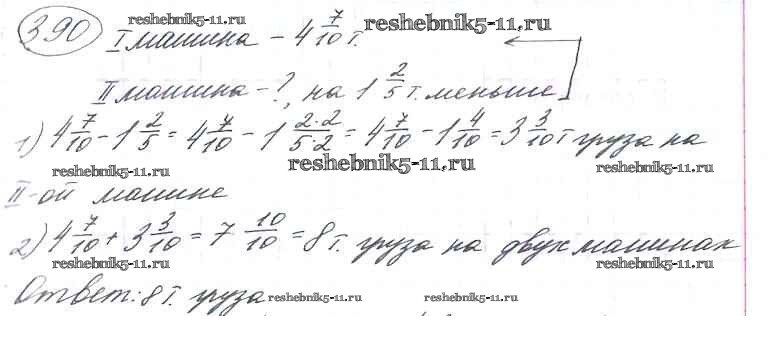 390 I машина – 4 7/10 т.
II машина – ?, на 1 2/5 т. меньше
1) 4 7/10 – 1 2/5 = 4 7/10 – 1 2·2/5·2 = 4 7/10 – 1 4/10 = 3 3/10 т груза на
II-ой машине
2) 4 7/10 + 3 3/10 = 7 10/10 = 8 т. груза на двух машинах
Ответ: 8 т. груза
reshebnik5-11.ru
reshebnik5-11.ru
reshebnik5-11.ru
reshebnik5-11.ru
reshebnik5-11.ru
reshebnik5-11.ru
reshebnik5-11.ru
reshebnik5-11.ru
reshebnik5-11.ru